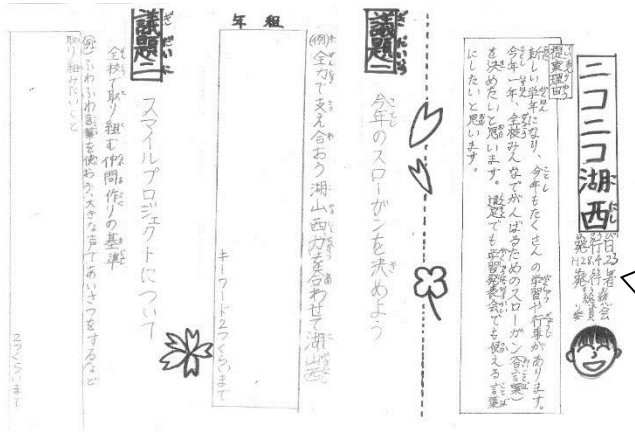 ニコニコ湖西
提案理由
新しい学年になり、今年もたくさんの学習や行事があります。
今年一年、全校みんなでがんばるためのスローガン(合言葉)
を決めたいと思います。でも学習発表会でも使える言葉
にしたいと思います。
議題一
今年のスローガンを決めよう
(例)全力で支え合おう湖山西力を合わせて湖山西
キーワード2つくらいまで
年 組
議題二
スマイルプロジェクトについて
全校で取り組む仲間作りの基準
(例)ふわふわ言葉を使おう、大きな声であいさつをするなど
取り組みたいこと
2つくらいまで